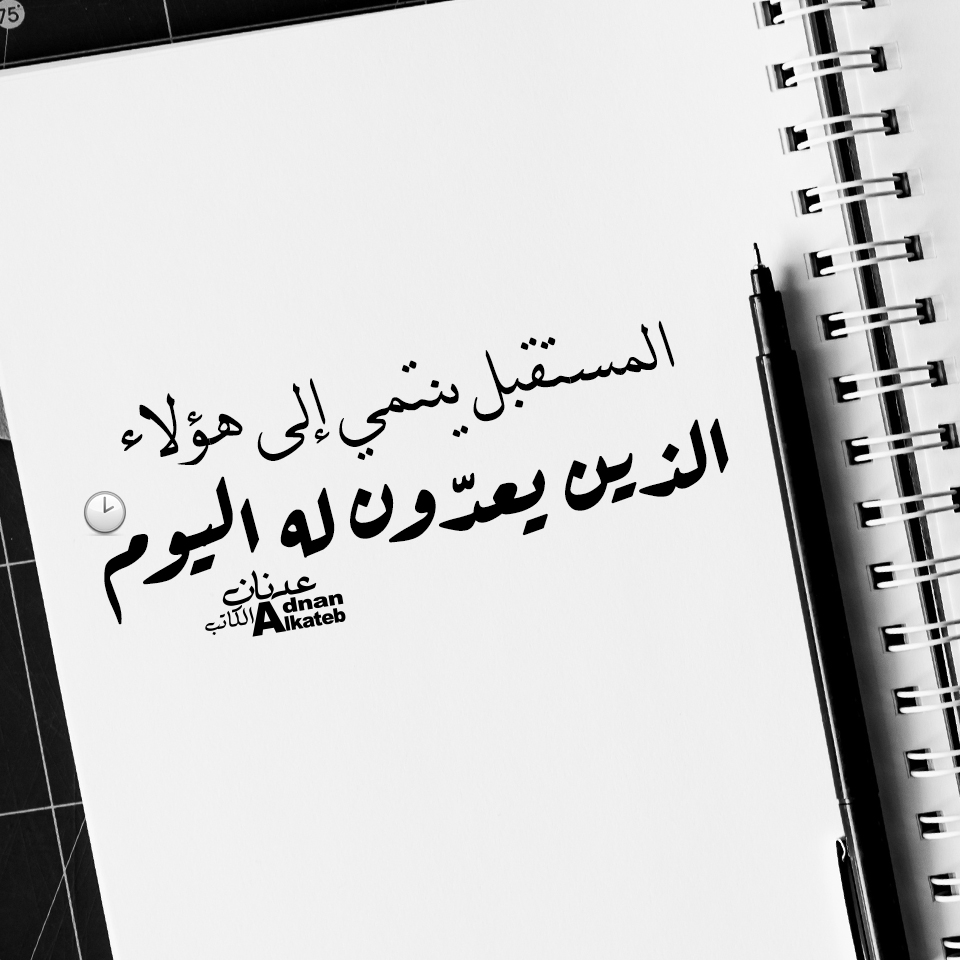 75°
المستقبل ينتمي إلى هؤلاء
الذين يعدّون له اليوم
عدنان
الكاتب
Adnan
Alkateb